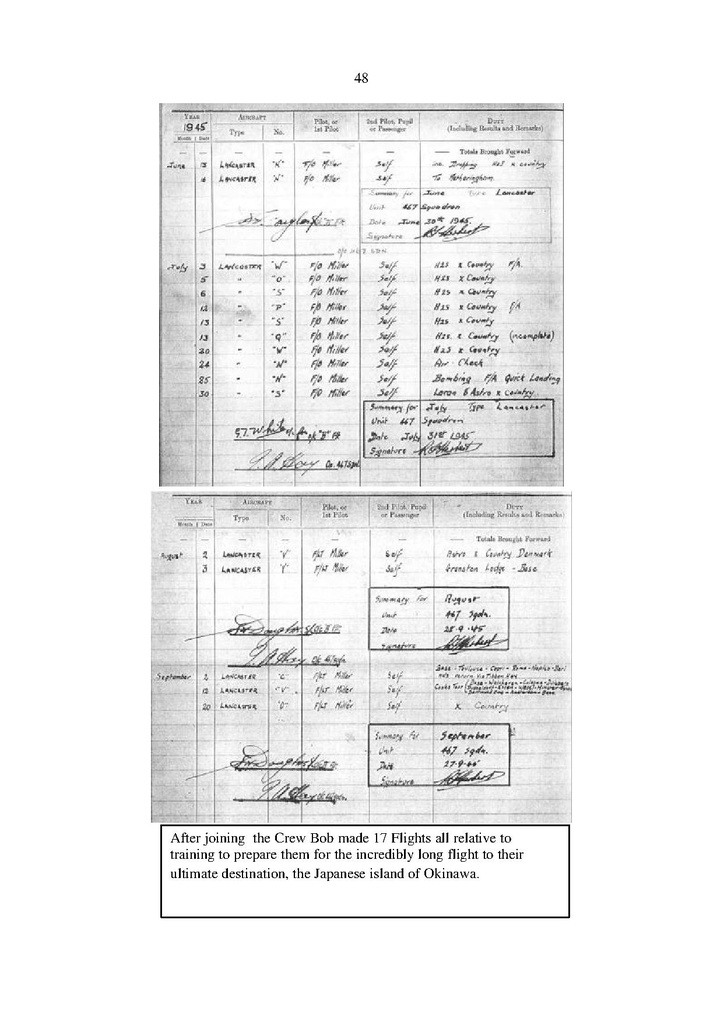 48
YEAR AIRCRAFT Pilot, or 2nd Pilot, Pupil DUTY
1945 Type No. 1st Pilot or Passenger (Including Results and Remarks)
Month Date
— — — — — — Totals Brought Forward
June 13 LANCASTER "K" F/O Miller Self H2S x country
LANCASTER F/O Miller Self To Metheringham
Summary for June Type Lancaster
Unit 467 Squadron
Date June 30th 1945
Signature
July 3 LANCASTER "W" F/O Miller Self H2S x Country F/A
5 " "O" F/O Miller Self H2S x Country
6 " "S" F/O Miller Self H2S x Country
12 " "P" F/O Miller Self H2S x Country F/A
13 " "S" F/O Miller Self H2S x County
13 " "Q" F/O Miller Self H2S x Country (incomplete)
20 " "W" F/O Miller Self H2S x Country
24 " "N" F/O Miller Self Air-Check
25 " "N" F/O Miller Self Bombing F/A Quick Landing
30 " "S" F/O Miller Self Loran & Astro x Country
Summary for July Type Lancaster
Unit 467 Squadron
Date July 31st 1945
Signature
YEAR AIRCRAFT Pilot, or 2nd Pilot, Pupil DUTY
Month Date Type No. 1st Pilot or Passenger (Including Results and Remarks)
— — — — — — Totals Brought Forward
August 2 LANCASTER "V" F/Lt Miller Self Astro x Country Denmark
3 LANCASTER "Y" F/Lt Miller Self Lodge - Base
Summary for August
Unit 467 Sqdn.
Date 28-9-45
Signature
Base - Toulouse - Capri - Rome - Naples - Bari
September 2 LANCASTER "C" F/Lt Miller Self
12 LANCASTER "V" F/Lt Miller Self Cooks Tour
20 LANCASTER "D" F/Lt Miller Self x Country
Summary for September
Unit 467 Sqdn.
Date 27-9-45
Signature
After joining the Crew Bob made 17 Flights all relative to
training to prepare them for the incredibly long flight to their
ultimate destination, the Japanese island of Okinawa.